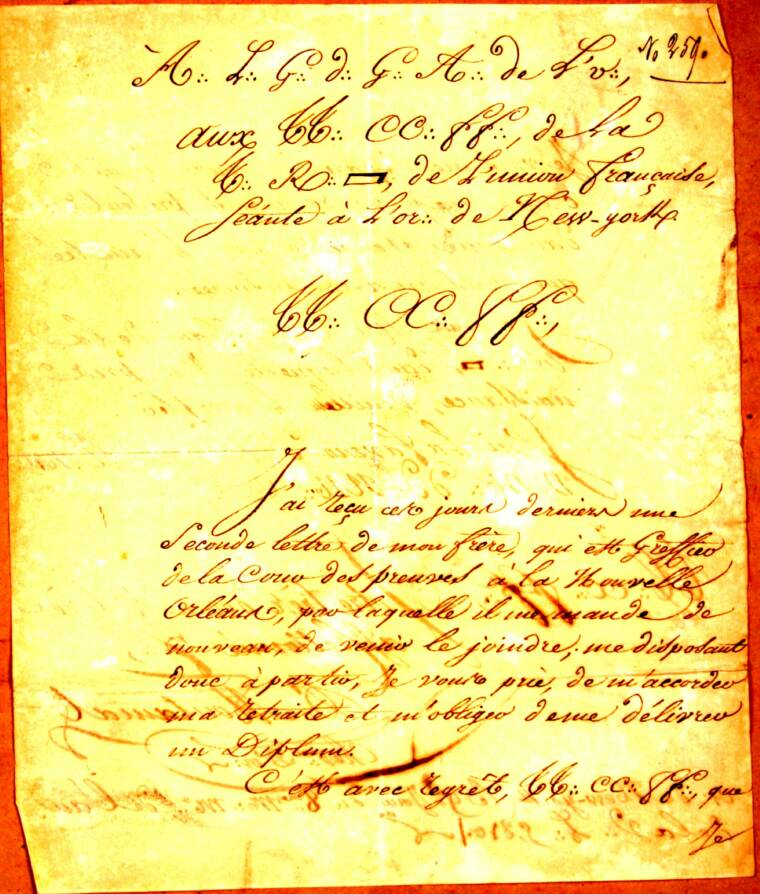 No 259.
À∴ L∴ G∴ d∴ G∴ A∴ de L'v∴,
aux TT∴ CC∴ ff∴, de la
T∴ R∴ ▭, de L'union française,
Séante à L'or∴ de New-york.
TT∴ CC∴ ff∴,
J'ai reçu ces jours derniers une
seconde lettre de mon frère, qui est Greffier
de la Cour des preuves à la Nouvelle
Orléans, par laquelle il me mande de
nouveau, de venir le joindre; me disposant
donc à partir, Je vous prie, de m'accorder
ma retraite et m'obliger de me délivrer
un Diplum.
C'est avec regrêt, TT∴ CC∴ ff∴, que
Je